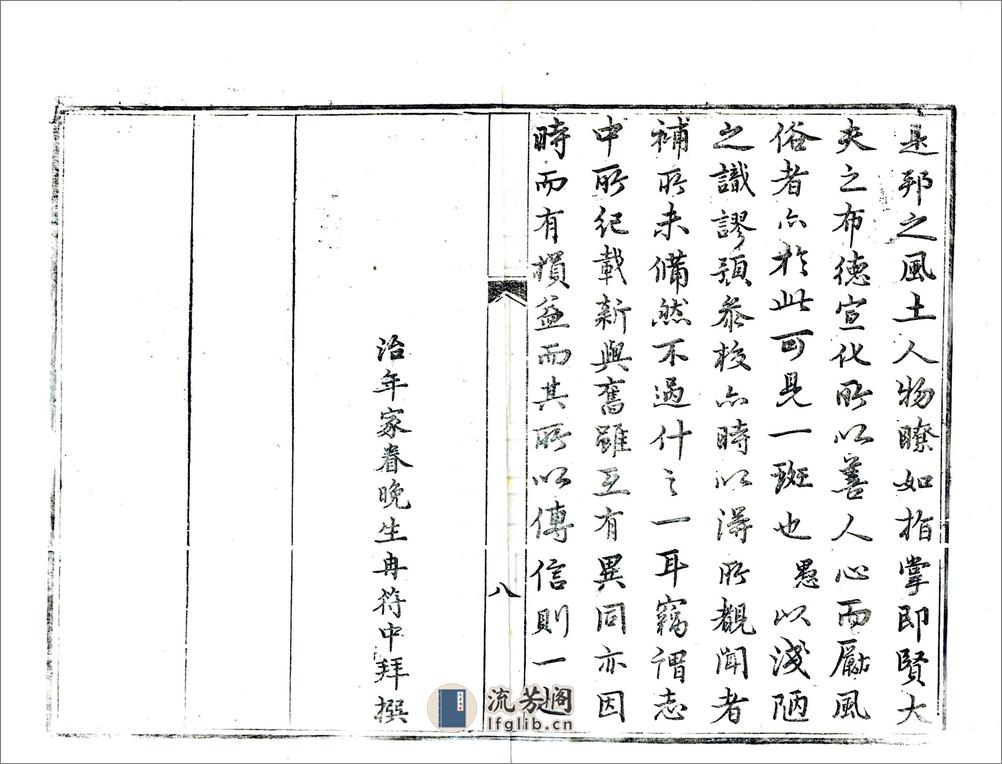 是邦之風土人物瞭如指掌即賢大
夫之布德宣化所以善人心而勵風
俗者亦於此可見一斑也愚以淺陋
之識謬預叅校亦時以得所觀聞者
補所未備然不過什之一耳竊謂志
中所紀載新與舊雖互有異同亦因
時而有損益而其所以傳信則一
八
治年家眷晚生冉符中拜撰
流芳阁
lfglib.cn